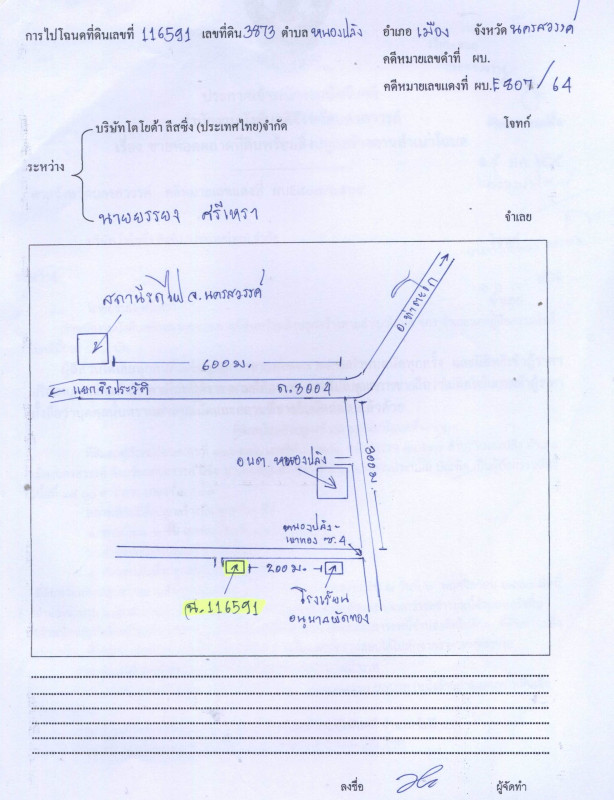 การไปโฉนดที่ดินเลขที่ 116591 เลขที่ดิน 3873 ตำบล หนองปลิง อำเภอ เมือง จังหวัด นครสวรรค์
คดีหมายเลขดำที่ ผบ.
คดีหมายเลขแดงที่ ผบ.E807/64
บริษัทโตโยต้า ลีสซิ่ง (ประเทศไทย)จำกัด โจทก์
ระหว่าง
นายยรรยง ศรีเหรา จำเลย
สถานีรถไฟ จ.นครสวรรค์
อ.ท่าตะโก
600 ม.
แยกจิรประวัติ ถ.3004
300 ม.
อบต.หนองปลิง
หนองปลิง-
เขาทอง ซ.4
200 ม.
ฉ.116591
โรงเรียน
อนุบาลพัดทอง
ลงชื่อ ผู้จัดทำ